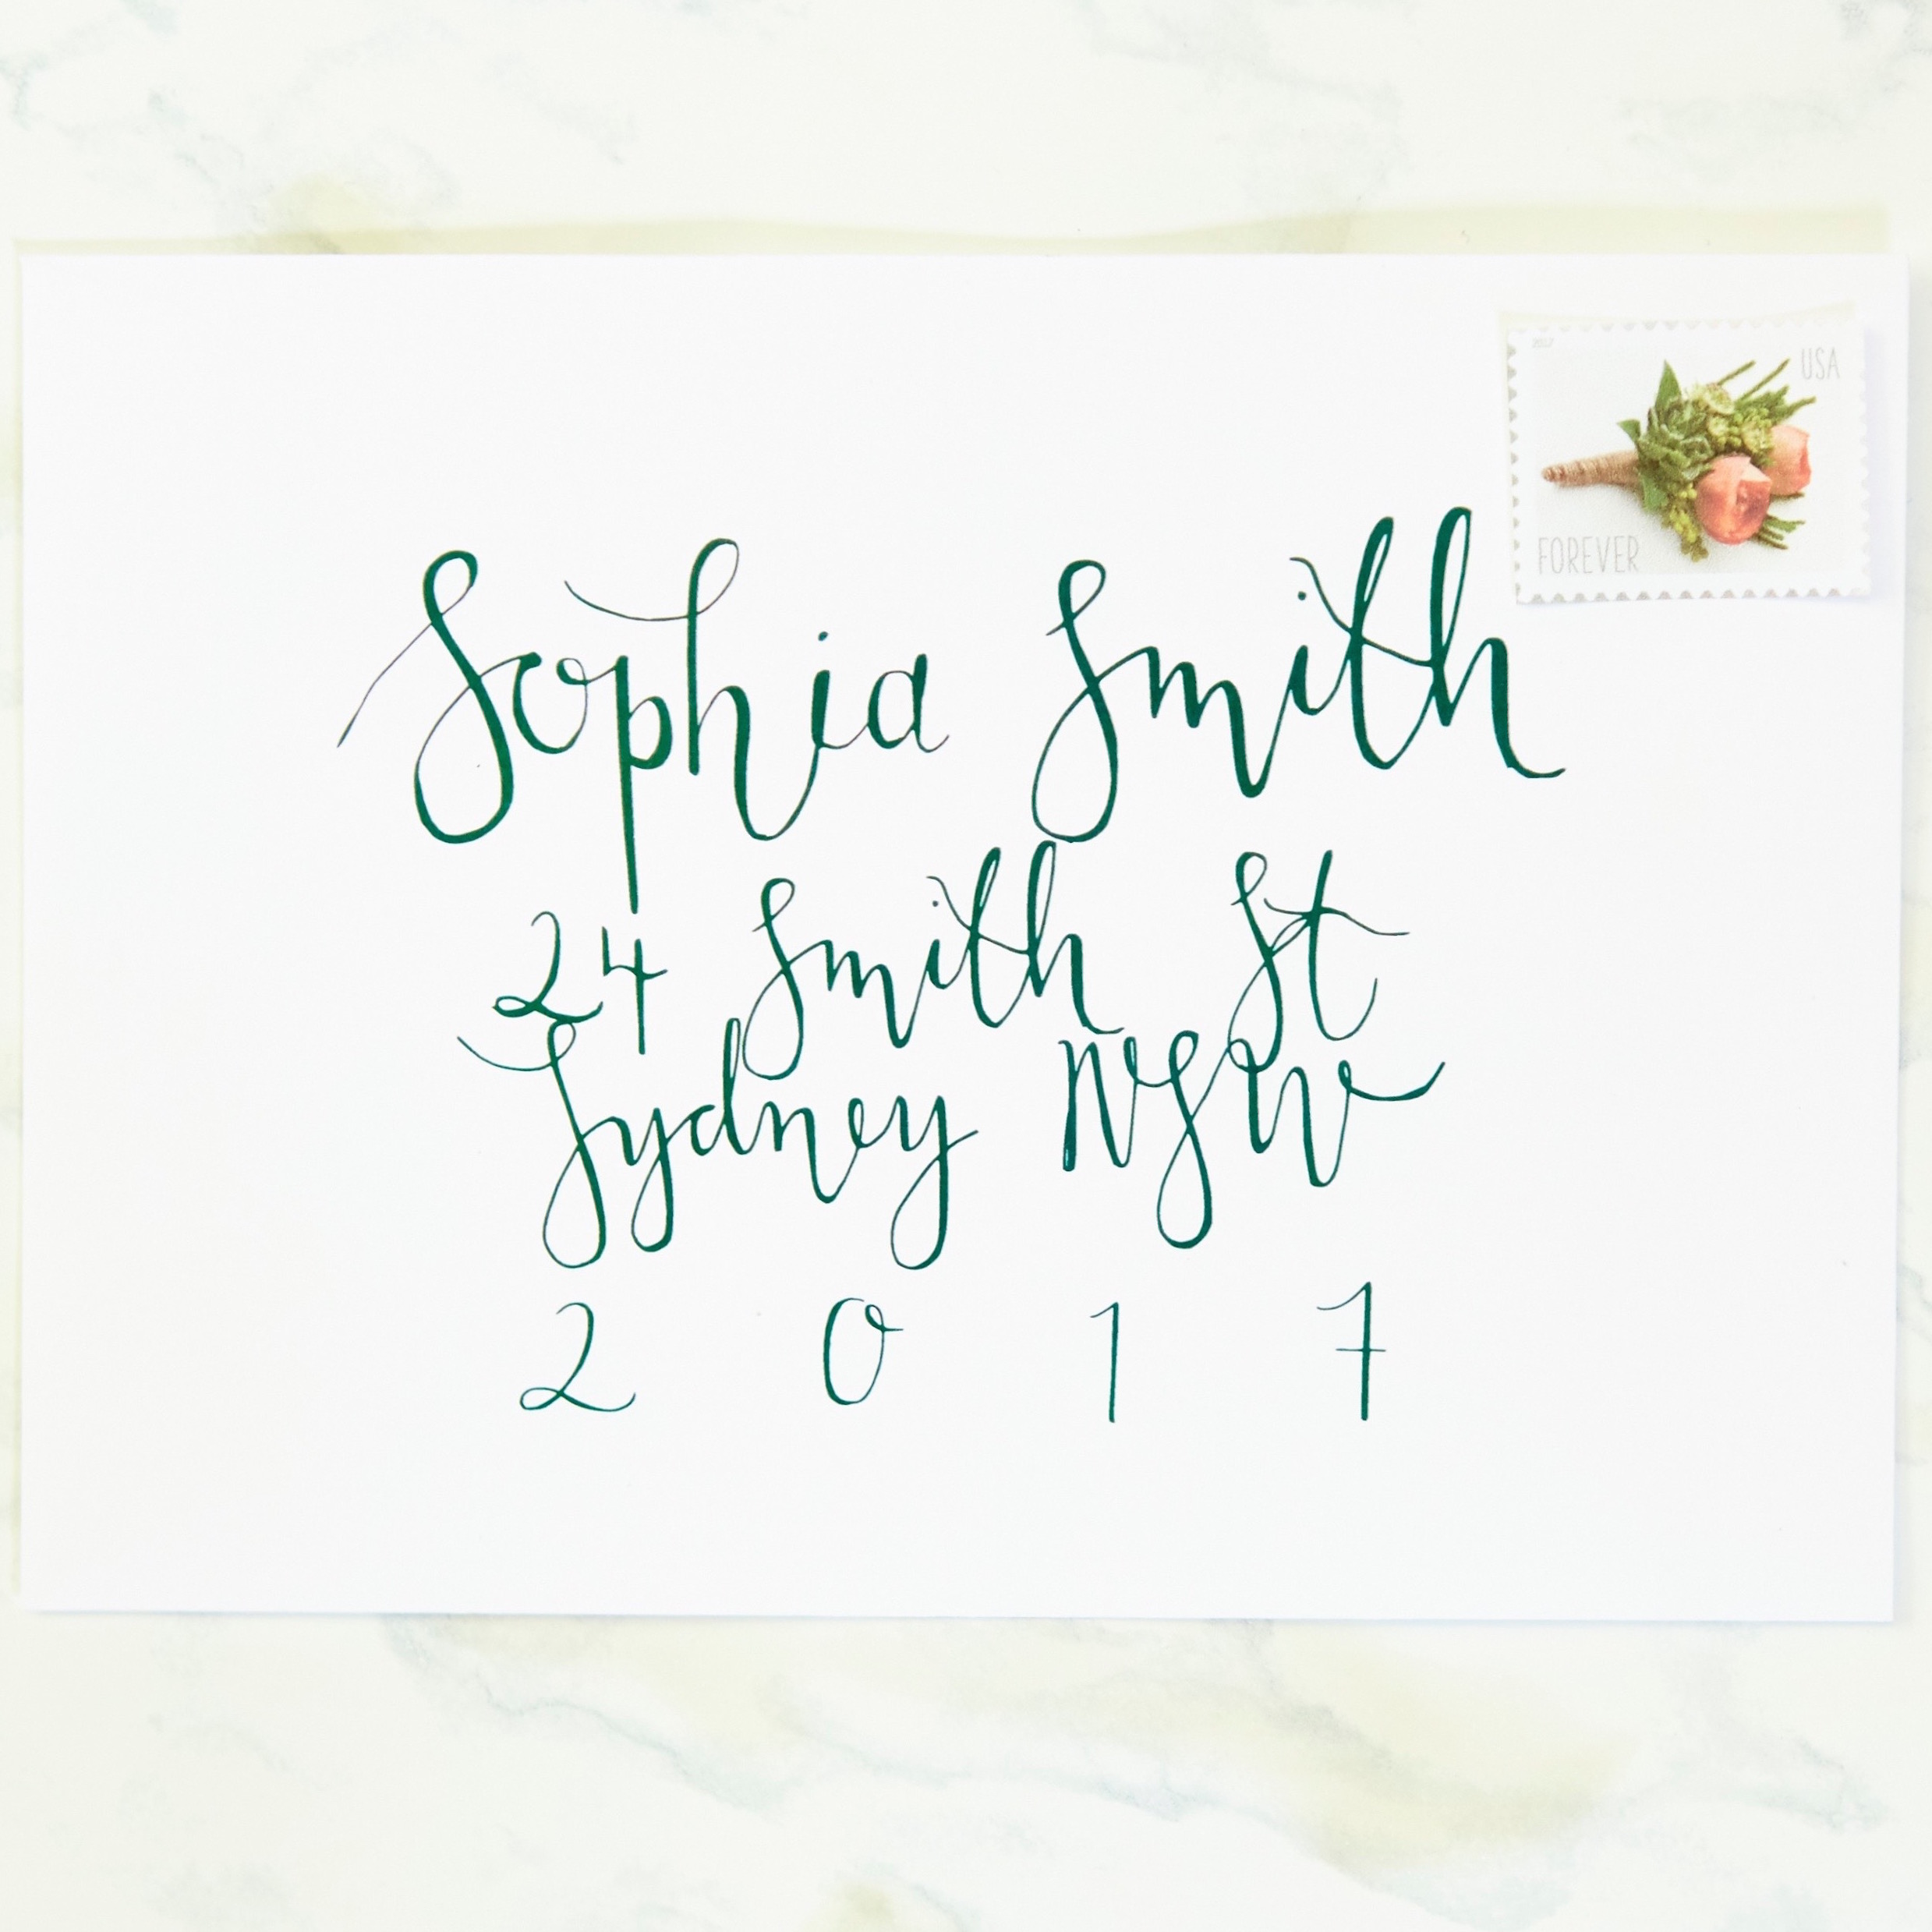 2017
USA
FOREVER
Sophia Smith
24 Smith St
Sydney NSW
2 0 1 7